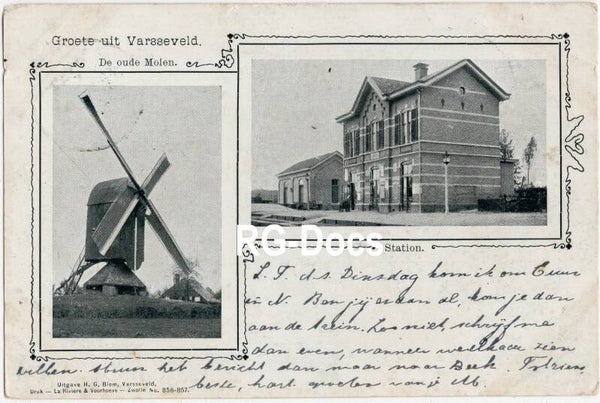 Groete uit Varsseveld.
De oude Molen.
RG-Docs
Station.
L. T. d.s. Dinsdag kom ik om
in N. Ben jij er dan al, kom je dan
aan de trein. Zoo niet, schrijf me
dan even, wanneer we elkaar zien
willen. Stuur het bericht dan maar naar Beek.
beste, hart. groeten van je M.
Uitgave H. G. Blom, Varsseveld.
Druk — La Rivière & Voorhoeve — Zwolle No. 856-857.